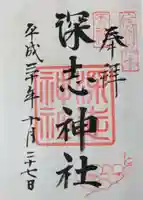 奉拝
深志神社
平成三十年十月二十七日